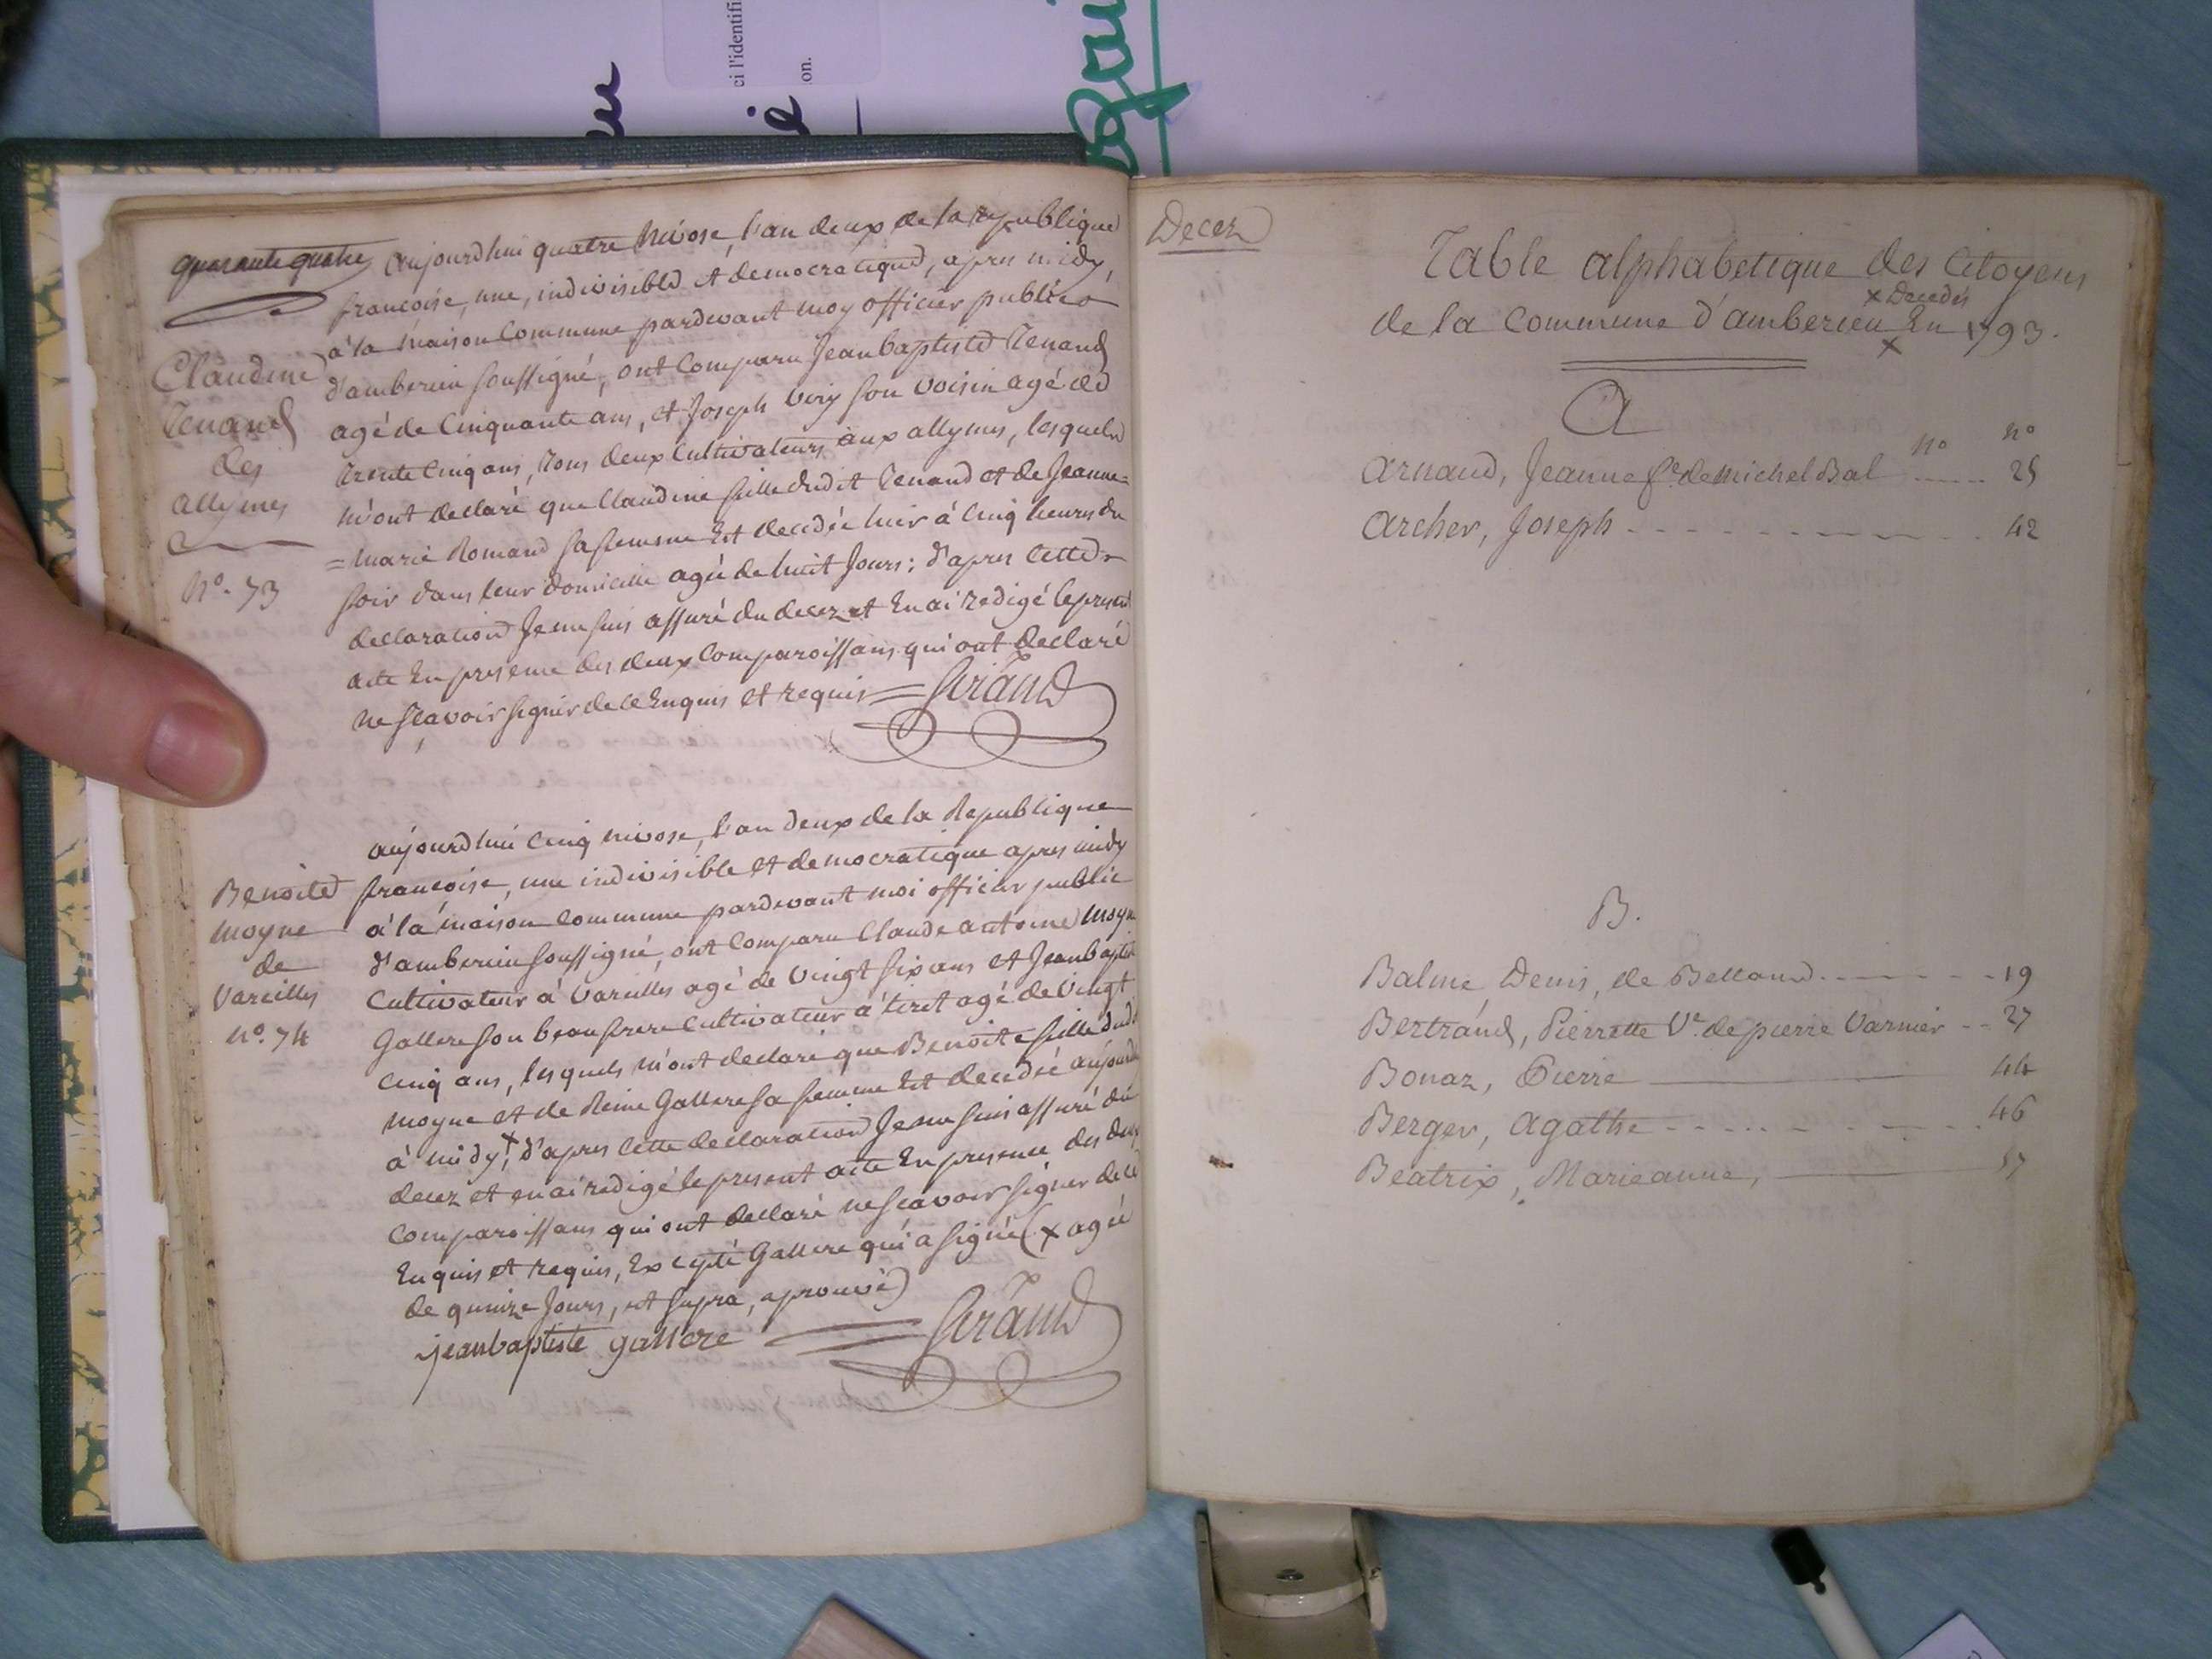 ci l'identifi
on.
quarante quatre
aujourdhui quatre Nivose, l'an deux de la republique
francoise, une, indivisible et democratique, apres midy,
à la maison commune pardevant moy officier public
d'amberieu soussigné, ont comparu Jean baptiste Tenand
agé de cinquante ans, et Joseph very son voisin agé de
trente cinq ans, tous deux cultivateurs aux allymes, lesquels
m'ont declaré que Claudine fille dudit Tenand et de Jeanne=
=marie Romand sa femme est decedée hier à cinq heures du
soir dans leur domicille agée de huit jours; d'apres cette
declaration Je me suis assuré du decez et en ai redigé le present
acte en presence des deux comparoissans qui ont declaré
ne sçavoir signer de ce enquis et requis = Girand
Claudine
Tenand
des
allymes
N°. 73
aujourdhui cinq nivose, l'an deux de la Republique
francoise, une indivisible et democratique apres midy
à la maison commune pardevant moi officier public
d'amberieu soussigné, ont comparu Claude antoine moyne
cultivateur à Vareilles agé de vingt six ans et Jean baptiste
Gallere son beaufrere cultivateur à tiret agé de vingt
cinq ans, lesquels m'ont declaré que Benoite fille dudit
moyne et de Reine Gallere sa femme est decedée aujourd
à midy,x d'apres cette declaration Je me suis assuré du
decez et en ai redigé le present acte en presence des deux
comparoissans qui ont declaré ne scavoir signer de ce
enquis et requis, Excepté Gallere qui a signé (x agée
de quinze jours, ut supra, aprouvé)
jeanbaptiste gallere = Girand
Benoite
moyne
de
Vareilles
n°. 74
Decez
Table alphabetique des Citoyens
x Decedés
de la Commune d'amberieu x En 1793.
A
n° n°
Arnaud, Jeanne fe. de michel Bal ..... 25
Archer, Joseph - - - - - - - - 42
B.
Balme Denis, de Bettand - - - - - 19
Bertrand, Pierrette Ve. de pierre Varnier - - 27
Bonaz, Pierre ——— 44
Berger, Agathe - - - - - - - 46
Béatrix, Marieanne, ——— 57